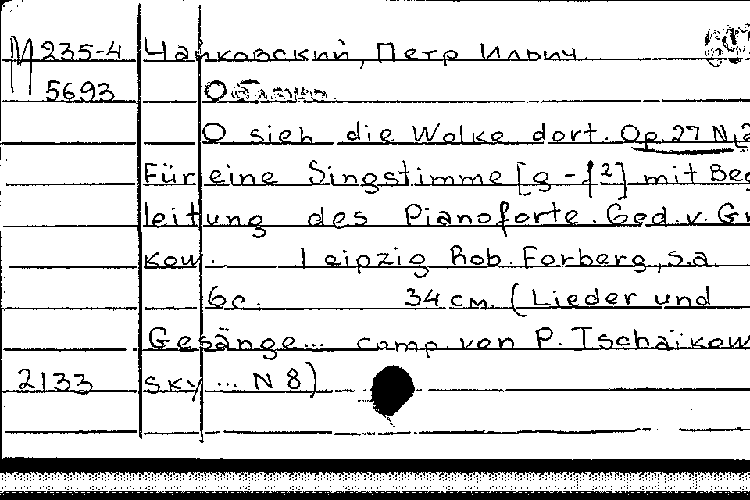 М 235-4 Чайковский, Петр Ильич
5693 О
O sieh die Wolke dort. Op. 27 N 2
Für eine Singstimme [g - f²] mit Beg
leitung des Pianoforte. Ged. v. Gr
kow. Leipzig Rob. Forberg, s.a.
6 c. 34 см. (Lieder und
Gesänge... comp. von P. Tschaïkow
2133 sky ... N 8)